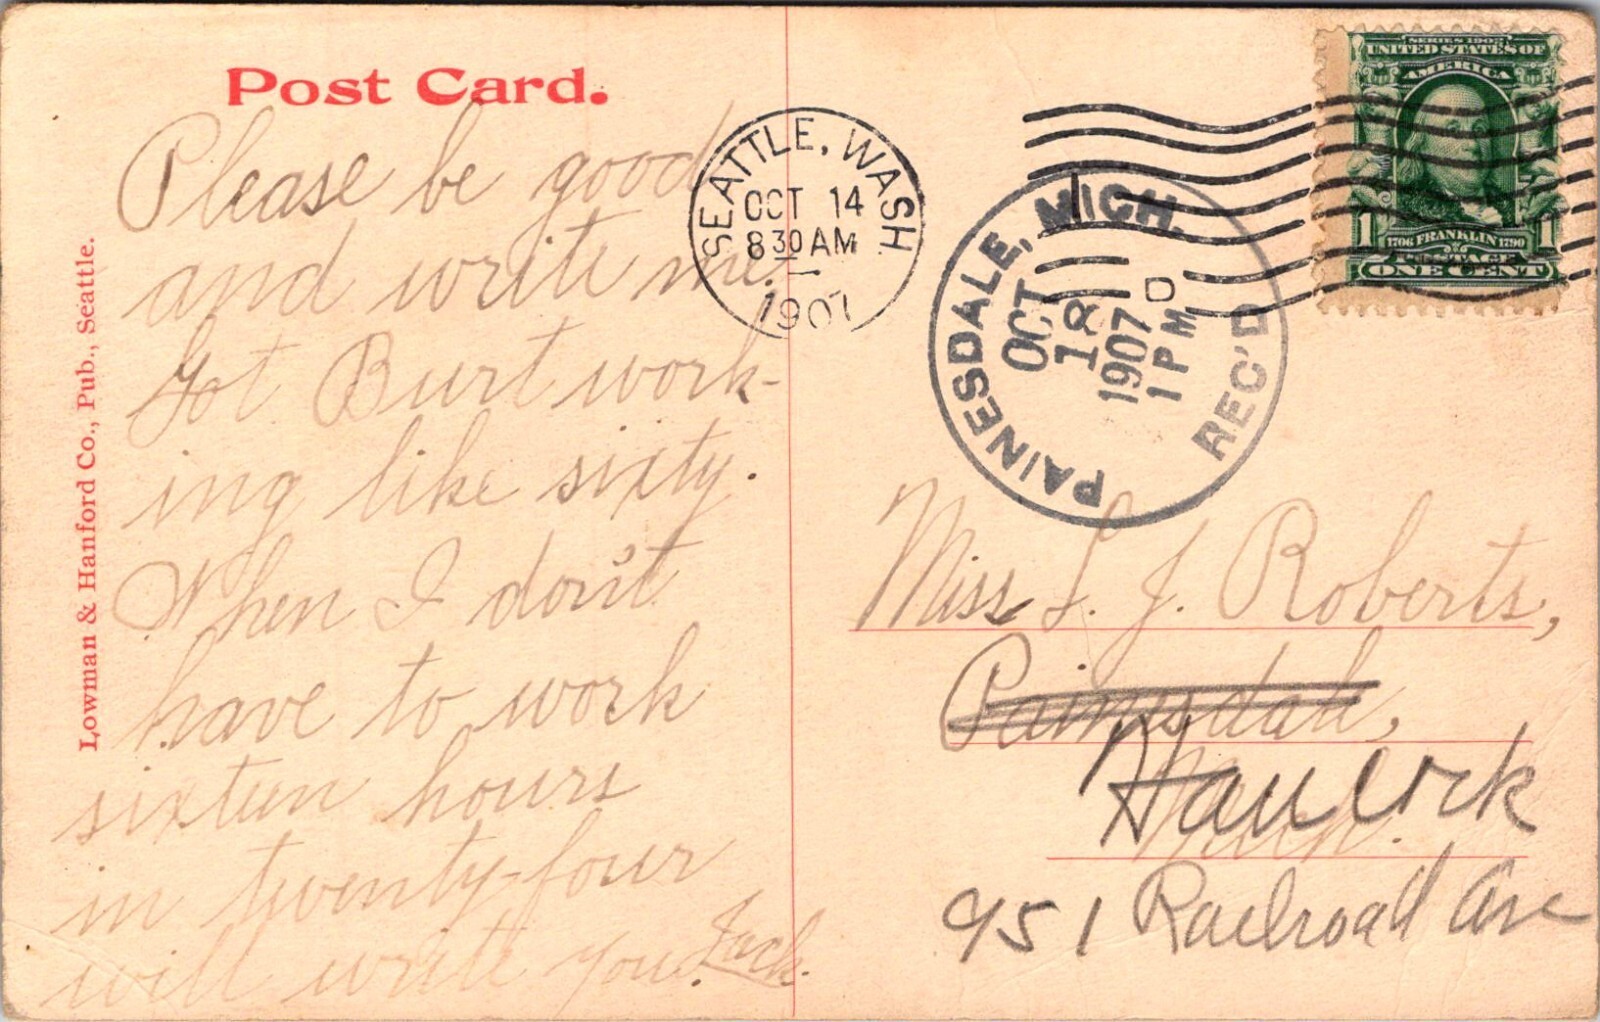 Post Card.
Please be good
and write me.
Got Burt work-
ing like sixty.
When I don't
have to work
sixteen hours
in twenty-four
will write you. Jack.
Lowman & Hanford Co., Pub., Seattle.
SEATTLE, WASH.
OCT 14
8 30 AM
1907
PAINESDALE, MICH.
OCT
18
1907
1 PM
REC'D
SERIES 1902
UNITED STATES OF
AMERICA
1 1
1706 FRANKLIN 1790
POSTAGE
ONE CENT
Miss L. J. Roberts,
Painesdale,
Mich.
Hancock
951 Railroad Ave